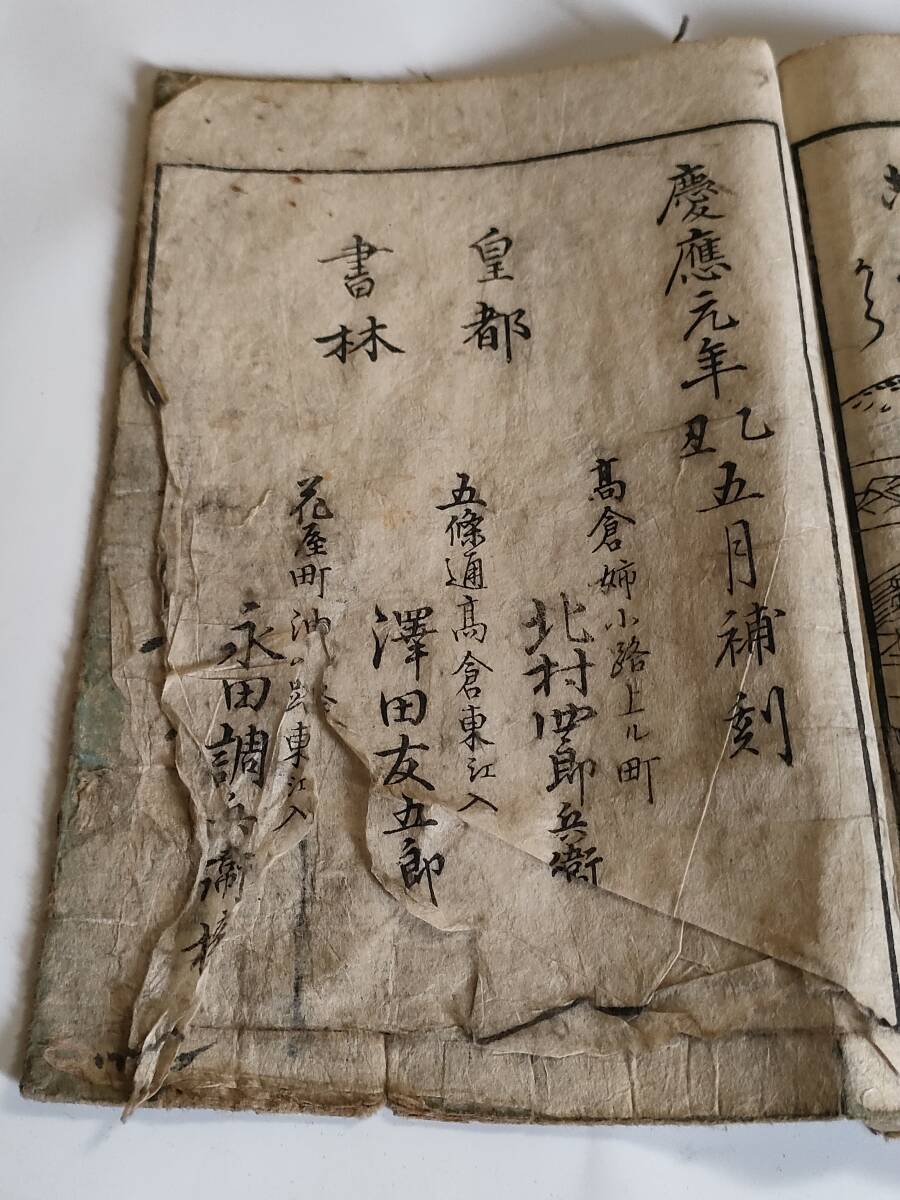 慶應元年乙丑五月補刻
皇都
書林
高倉姉小路上ル町
北村四郎兵衛
五條通高倉東江入
澤田友五郎
花屋町油 東江入
永田調兵衛